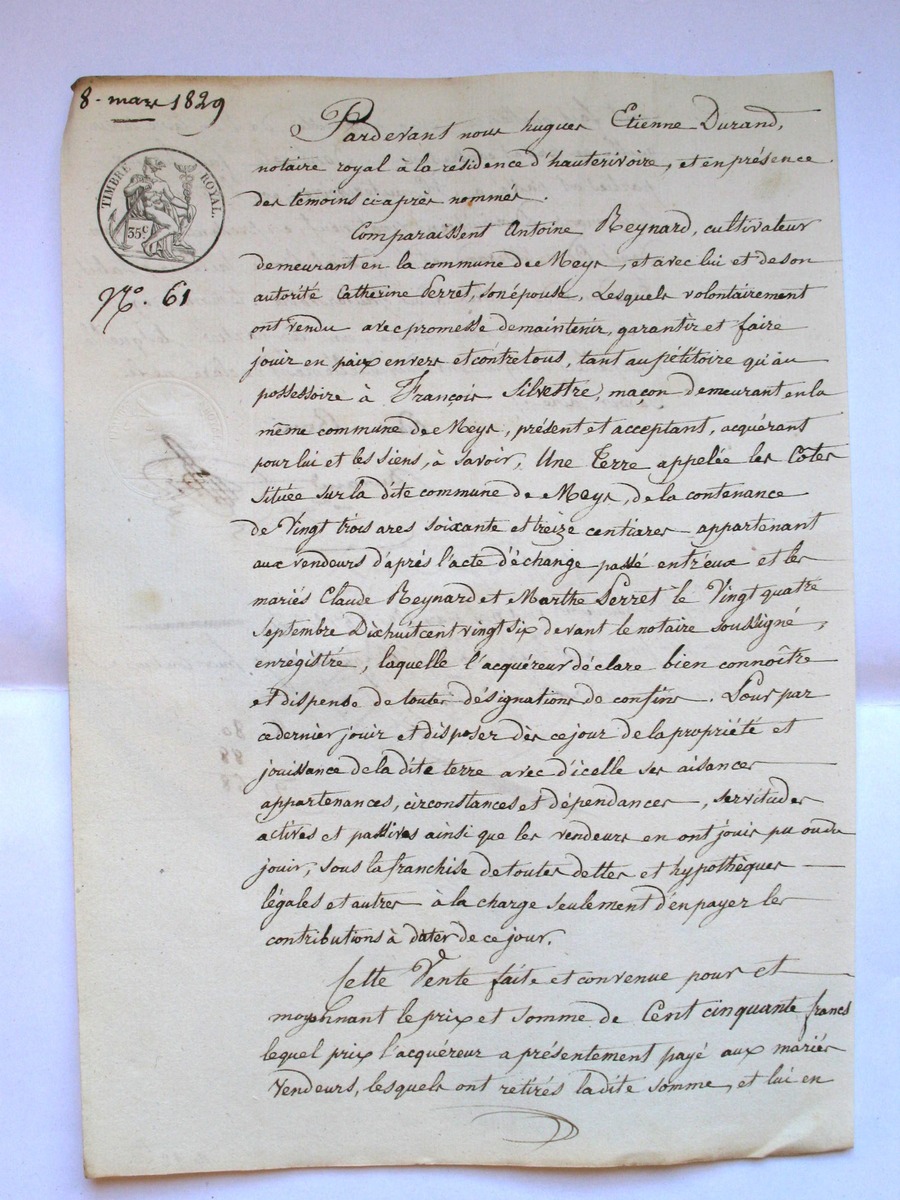 8. mars 1829
TIMBRE ROYAL.
35c
No. 61
Pardevant nous hugues Etienne Durand,
notaire royal à la résidence d'hauterivoire, et en présence
des témoins ci après nommés.
Comparaissent Antoine Reynard, cultivateur
demeurant en la commune de Meys, et avec lui et de son
autorité Catherine Perret, son épouse, Lesquels volontairement
ont vendu avec promesse de maintenir, garantir et faire
jouir en paix envers et contre tous, tant au pétitoire qu'au
possessoire à François Silvestre, maçon demeurant en la
même commune de Meys, présent et acceptant, acquérant
pour lui et les siens, à savoir, Une Terre appelée les Côtes
située sur la dite commune de Meys, de la contenance
de Vingt trois ares soixante et treize centiares appartenant
aux vendeurs d'après l'acte d'échange passé entr'eux et les
mariés Claude Reynard et Marthe Perret le Vingt quatre
septembre Dix huit cent vingt six devant le notaire soussigné,
enrégistré, laquelle l'acquéreur déclare bien connoître
et dispense de toutes désignations de confins. Pour par
ce dernier jouir et disposer dès ce jour de la propriété et
jouissance de la dite terre avec d'icelle ses aisances
appartenances, circonstances et dépendances, servitudes
actives et passives ainsi que les vendeurs en ont joui pu ou du
jouir, sous la franchise de toutes dettes et hypothèques
légales et autres à la charge seulement d'en payer les
contributions à dater de ce jour.
Cette Vente faite et convenue pour et
moyennant le prix et somme de Cent cinquante francs
lequel prix l'acquéreur a présentement payé aux mariés
Vendeurs, lesquels ont retirés la dite somme, et lui en